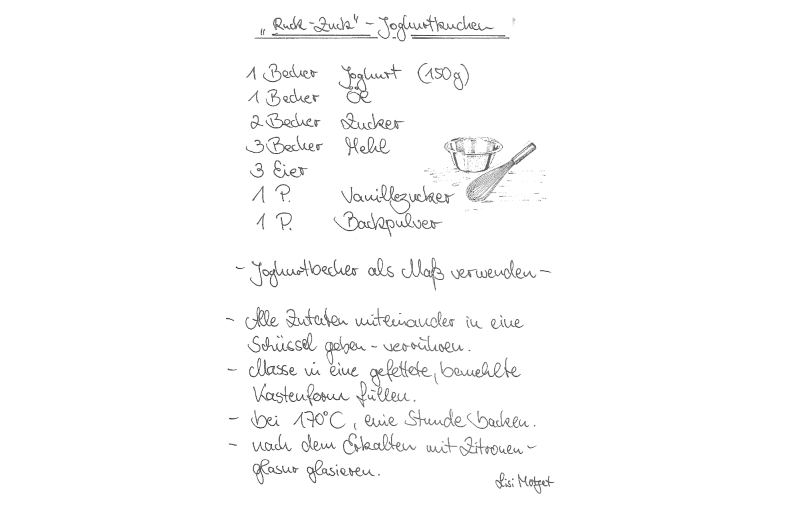 „Ruck-Zuck" - Joghurtkuchen
1 Becher Joghurt (150g)
1 Becher Öl
2 Becher Zucker
3 Becher Mehl
3 Eier
1 P. Vanillezucker
1 P. Backpulver
- Joghurtbecher als Maß verwenden -
- Alle Zutaten miteinander in eine
Schüssel geben - verrühren.
- Masse in eine gefettete, bemehlte
Kastenform füllen.
- bei 170°C, eine Stunde backen.
- nach dem Erkalten mit Zitronen-
glasur glasieren.
Lisi